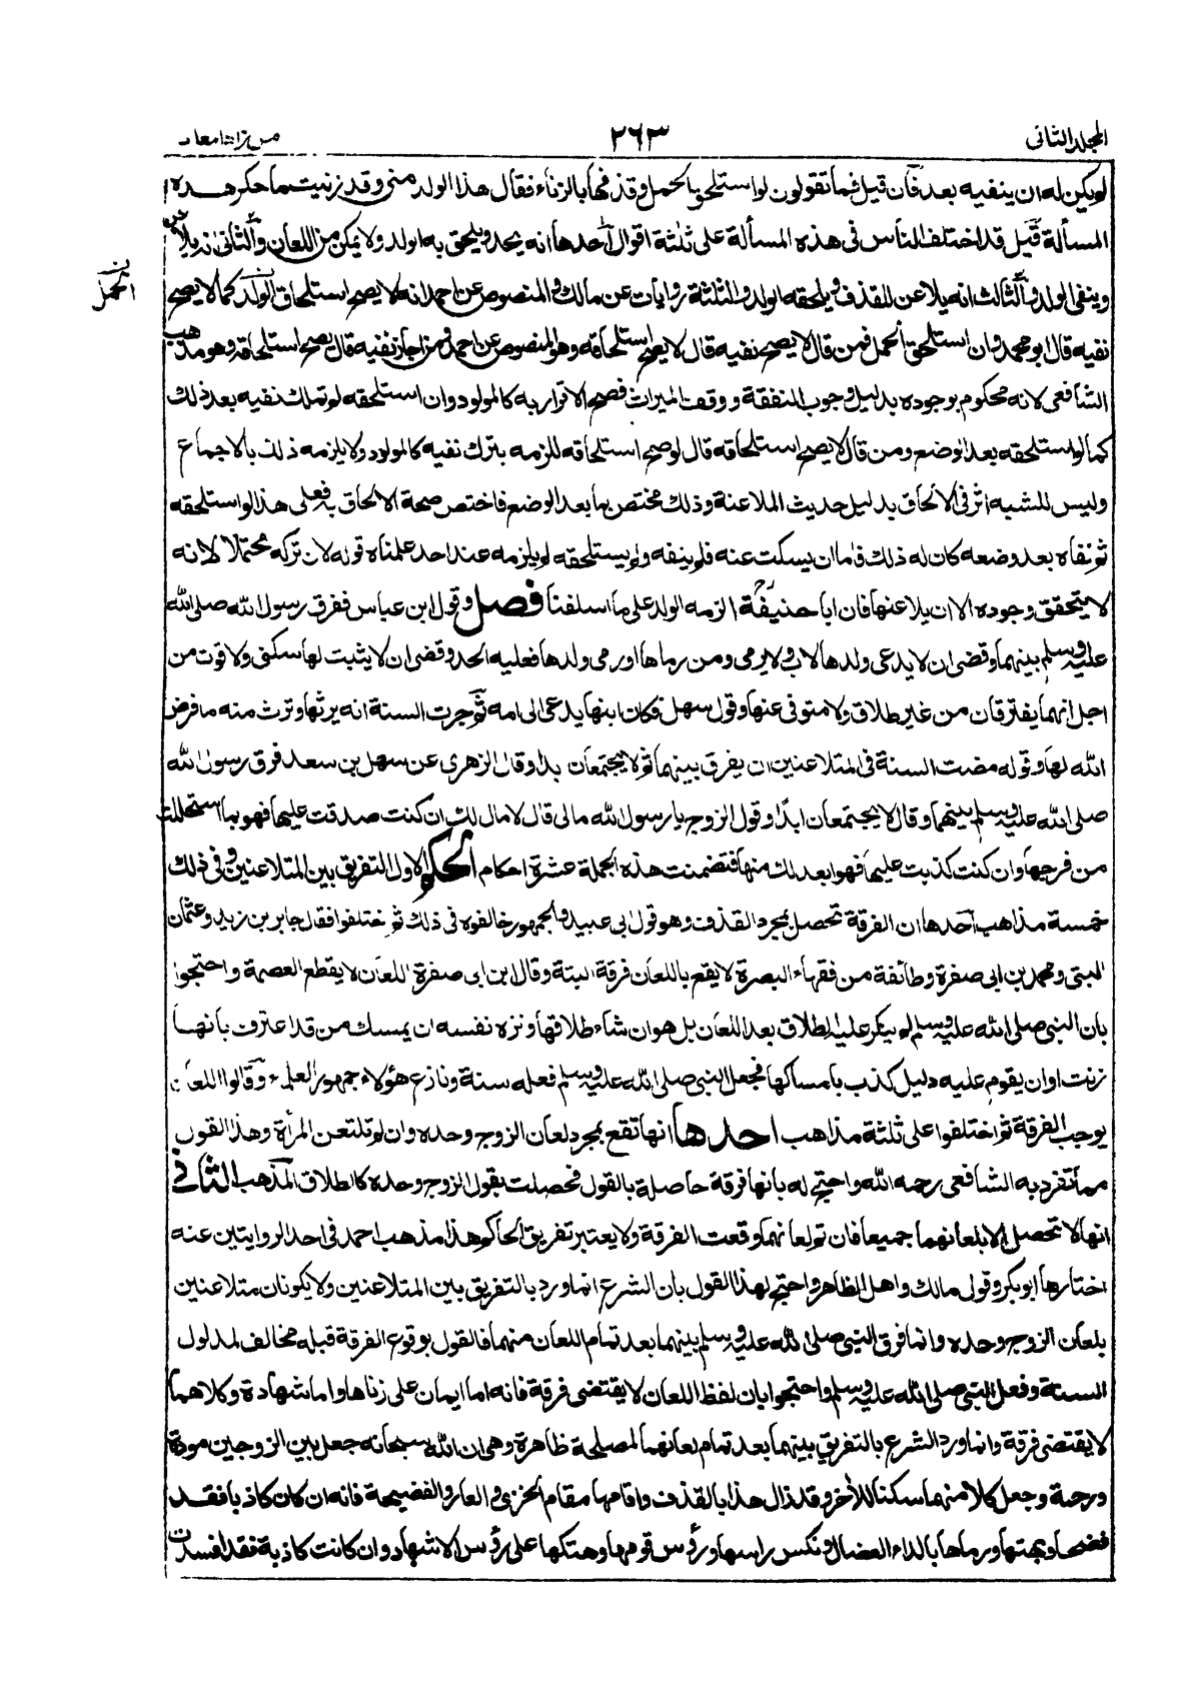 المجلد الثانى
٢٦٣
من زاد المعاد
لم يكن له ان ينفيه بعد فان قيل فما تقولون لو استلحق الحمل وقذفها بالزناء فقال هذا الولد منى وقد زنيت ما حكم هذه
المسألة قيل قد اختلف الناس فى هذه المسألة على ثلثة اقوال احدها انه يحد ويلحق به الولد ولا يمكن من اللعان والثانى انه يلاعن
وينفى الولد والثالث انه يلاعن للقذف ويلحقه الولد والثلثة روايات عن مالك والمنصوص عن احمد انه لا يصح استلحاق الولد كما لا يصح
الحمل ن
نفيه قال ابو محمد وان استلحق الحمل فمن قال لا يصح نفيه قال لا يصح استلحاقه وهو المنصوص عن احمد ومن اجاز نفيه قال يصح استلحاقه وهو مذهب
الشافعى لانه محكوم بوجوده بدليل وجوب النفقة ووقف الميراث فصح الاقرار به كالمولود وان استلحقه لم تملك نفيه بعد ذلك
كما لو استلحقه بعد الوضع ومن قال لا يصح استلحاقه قال لو صح استلحاقه للزمه بترك نفيه كالمولود ولا يلزمه ذلك بالاجماع
وليس للشبه اثر فى الالحاق بدليل حديث الملاعنة وذلك مختص بما بعد الوضع فاختص صحة الالحاق به فعلى هذا لو استلحقه
ثم نفاه بعد وضعه كان له ذلك فاما ان يسكت عنه فلم ينفه ولم يستلحقه لم يلزمه عند احد علمناه قوله لان تركه محتملا لانه
لا يتحقق وجوده الا ان يلاعنها فان ابا حنيفة الزمه الولد على ما اسلفنا فصل وقول ابن عباس ففرق رسول الله صلى الله
عليه وسلم بينهما وقضى ان لا يدعى ولدها لاب ولا يرمى ومن رماها او رمى ولدها فعليه الحد وقضى ان لا يثبت لها سكنى ولا قوت من
اجل انهما يفترقان من غير طلاق ولا متوفى عنها وقول سهل فكان ابنها يدعى الى امه ثم جرت السنة انه يرثها وترث منه ما فرض
الله لها وقوله مضت السنة فى المتلاعنين ان يفرق بينهما ثم لا يجتمعان بدا وقال الزهرى عن سهل بن سعد فرق رسول الله
صلى الله عليه وسلم بينهما وقال لا يجتمعان ابدا وقول الزوج يا رسول الله مالى قال لا مال لك ان كنت صدقت عليها فهو بما استحللت
من فرجها وان كنت كذبت عليها فهو ابعد لك منها فتضمنت هذه الجملة عشرة احكام الحكم الاول التفريق بين المتلاعنين وفى ذلك
خمسة مذاهب احدها ان الفرقة تحصل بمجرد القذف وهو قول ابى عبيد والجمهور خالفوه فى ذلك ثم اختلفوا فقال جابر بن زيد وعثمان
البتى ومحمد بن ابى صفرة وطائفة من فقهاء البصرة لا يقع باللعان فرقة البتة وقال ابن ابى صفرة اللعان لا يقطع العصمة واحتجوا
بان النبى صلى الله عليه وسلم لم ينكر عليه الطلاق بعد اللعان بل هو انشاء طلاقها ونزه نفسه ان يمسك من قد اعترف بانها
زنت او ان يقوم عليه دليل كذب بامساكها فجعل النبى صلى الله عليه وسلم فعله سنة ونازع هؤلاء جمهور العلماء وقالوا اللعان
يوجب الفرقة ثم اختلفوا على ثلثة مذاهب احدها انها تقع بمجرد لعان الزوج وحده وان لم تلتعن المرأة وهذا القول
مما تفرد به الشافعى رحمه الله واحتج له بانها فرقة حاصلة بالقول فحصلت بقول الزوج وحده كالطلاق المذهب الثانى
انها لا تحصل الا بلعانهما جميعا فان تم لعانهما وقعت الفرقة ولا يعتبر تفريق الحاكم وهذا مذهب احمد فى احد الروايتين عنه
اختارها ابو بكر وقول مالك واهل الظاهر واحتج لهذا القول بان الشرع انما ورد بالتفريق بين المتلاعنين ولا يكونان متلاعنين
بلعان الزوج وحده وانما فرق النبى صلى الله عليه وسلم بينهما بعد تمام اللعان منهما فالقول بوقوع الفرقة قبله مخالف لمدلول
السنة وفعل النبى صلى الله عليه وسلم واحتجوا بان لفظ اللعان لا يقتضى فرقة فانه اما ايمان على زناها واما شهادة وكلاهما
لا يقتضى فرقة وانما ورد الشرع بالتفريق بينهما بعد تمام لعانهما لمصلحة ظاهرة وهى ان الله سبحانه جعل بين الزوجين مودة
ورحمة وجعل كلا منهما سكنا للاخر وقد زال هذا بالقذف واقامها مقام الخزى والعار والفضيحة فانه ان كان كاذبا فقد
فضحها وبهتها ورماها بالداء العضال ونكس راسها ورؤس قومها وهتكها على رؤس الاشهاد وان كانت كاذبة فقد افسدت